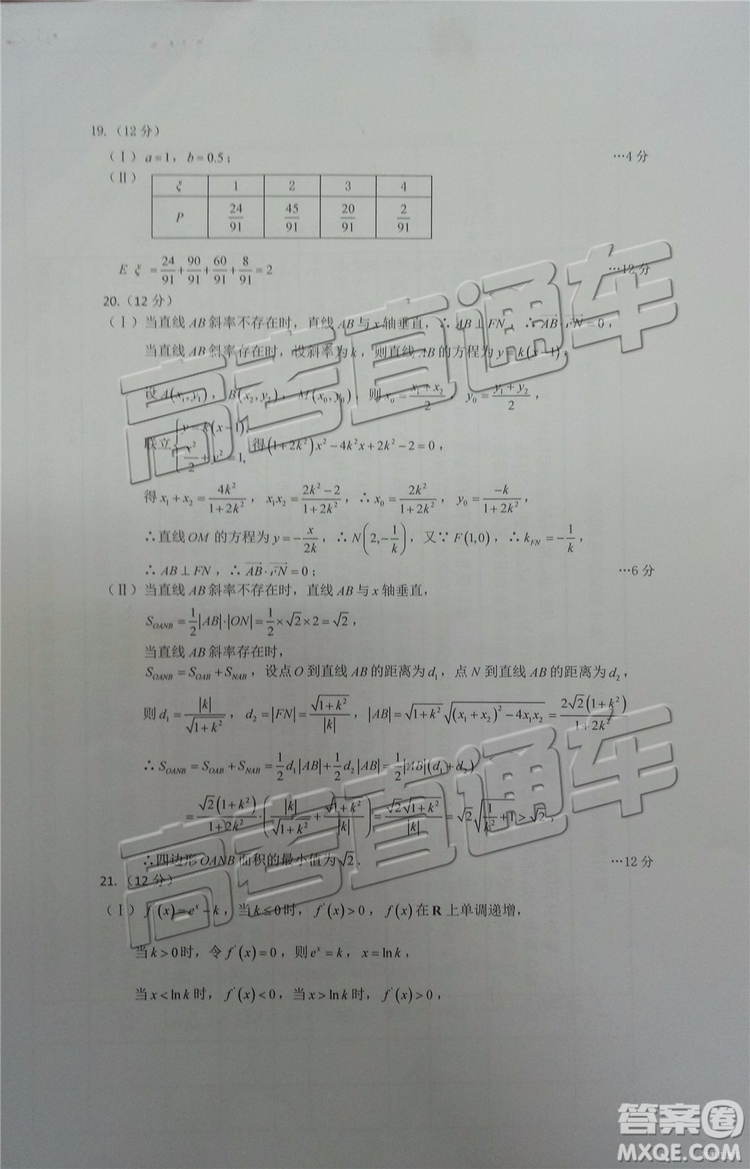 19.（12 分）
（Ⅰ）a=1，b=0.5； …4 分
（Ⅱ）
ξ 1 2 3 4
P 24/91 45/91 20/91 2/91
E ξ = 24/91 + 90/91 + 60/91 + 8/91 = 2 …12 分
20.（12 分）
（Ⅰ）当直线 AB 斜率不存在时，直线 AB 与 x 轴垂直，∴ AB ⊥ FN，∴ AB·FN = 0，
当直线 AB 斜率存在时，设斜率为 k，则直线 AB 的方程为 y = k(x−1)，
设 A(x₁,y₁)，B(x₂,y₂)，M(x₀,y₀)，则 x₀ = (x₁+x₂)/2，y₀ = (y₁+y₂)/2，
联立 { y=k(x−1), x²/2 + y² = 1, 得(1+2k²)x² − 4k²x + 2k² − 2 = 0，
得 x₁+x₂ = 4k²/(1+2k²)，x₁x₂ = (2k²−2)/(1+2k²)，∴ x₀ = 2k²/(1+2k²)，y₀ = −k/(1+2k²)，
∴直线 OM 的方程为 y = −x/(2k)，∴ N(2, −1/k)，又∵ F(1,0)，∴ k_FN = −1/k，
∴ AB ⊥ FN，∴ AB·FN = 0； …6 分
（Ⅱ）当直线 AB 斜率不存在时，直线 AB 与 x 轴垂直，
S_OANB = 1/2|AB|·|ON| = 1/2×√2×2 = √2，
当直线 AB 斜率存在时，
S_OANB = S_OAB + S_NAB，设点 O 到直线 AB 的距离为 d₁，点 N 到直线 AB 的距离为 d₂，
则 d₁ = |k|/√(1+k²)，d₂ = |FN| = √(1+k²)/|k|，|AB| = √(1+k²)√((x₁+x₂)² − 4x₁x₂) = 2√2(1+k²)/(1+2k²)
∴ S_OANB = S_OAB + S_NAB = 1/2 d₁|AB| + 1/2 d₂|AB| = 1/2|AB|(d₁+d₂)
= √2(1+k²)/(1+2k²)·(|k|/√(1+k²) + √(1+k²)/|k|) = √2√(1+k²)/|k| = √2√(1/k² + 1) > √2，
∴四边形 OANB 面积的最小值为 √2． …12 分
21.（12 分）
（Ⅰ）f′(x) = eˣ − k，当 k ≤ 0 时，f′(x) > 0，f(x) 在 R 上单调递增，
当 k > 0 时，令 f′(x) = 0，则 eˣ = k，x = ln k，
当 x < ln k 时，f′(x) < 0，当 x > ln k 时，f′(x) > 0，
高考直通车
高考直通车
答案圈
MXQE.COM